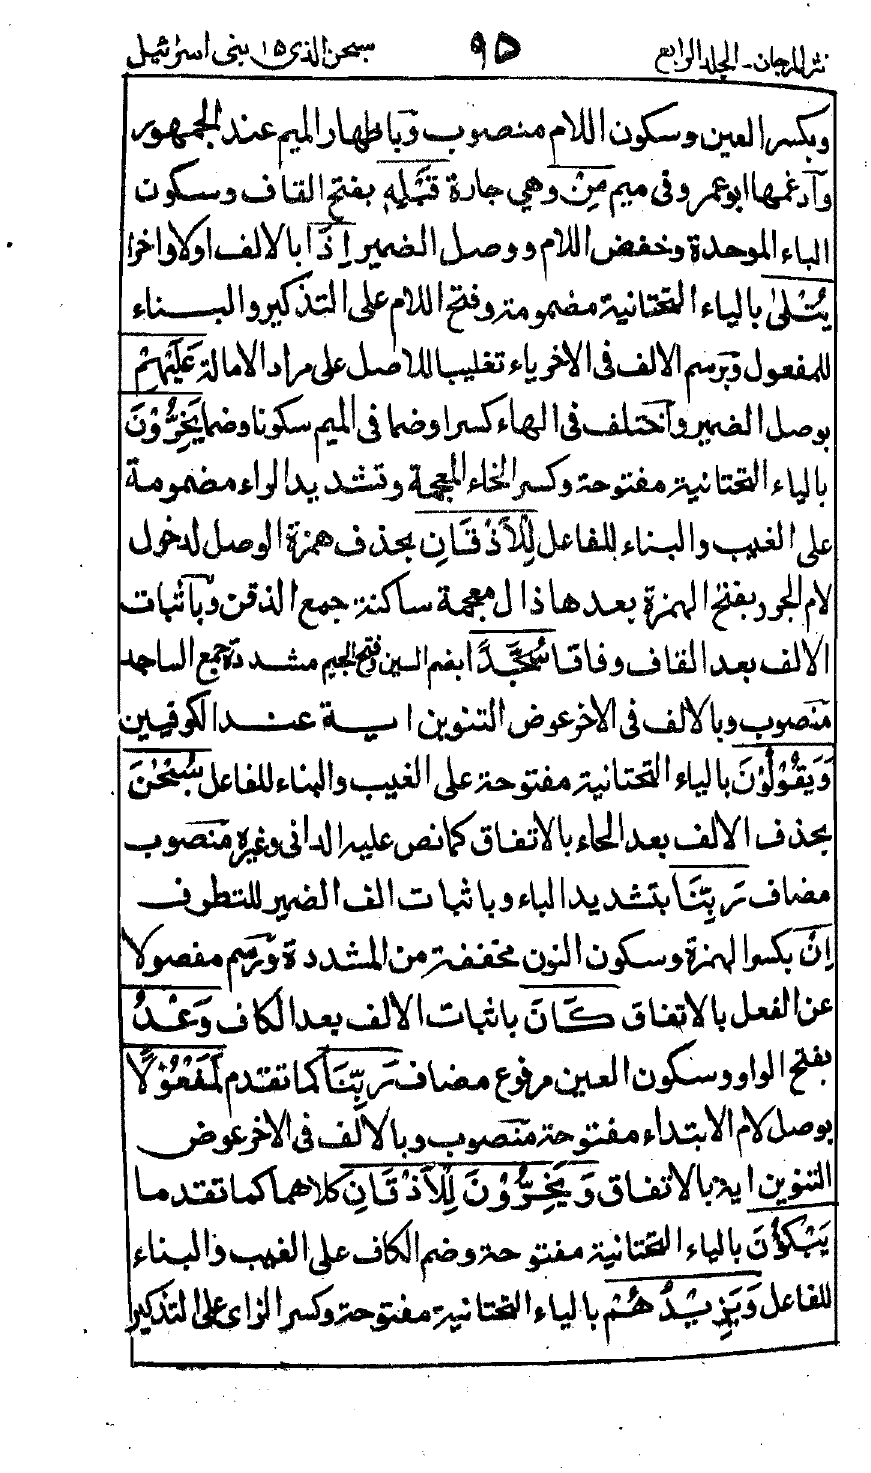 نثر المرجان - المجلد الرابع ٩٥ سبحن الذى ١٥ بنى اسرائيل
وبكسر العين وسكون اللام منصوب وَباظهار الميم عند الجمهور
وآدغمها ابو عمرو فى ميم مِنْ وهي جارة قَبْلِهِ بفتح القاف وسكون
الباء الموحدة وخفض اللام ووصل الضمير اِذَا بالالف اولا واخرا
يُتْلىٰ بالياء التحتانية مضمومة وفتح اللام على التذكير والبناء
للمفعول وَبرسم الالف فى الاخر ياء تغليبا للاصل على مراد الامالة عَلَيْهِمْ
بوصل الضمير وآختلف فى الهاء كسرا وضما فى الميم سكونا وضما يَخِرُّوْنَ
بالياء التحتانية مفتوحة وكسر الخاء المعجمة وتشديد الراء مضمومة
على الغيب والبناء للفاعل لِلْاَذْقَانِ بحذف همزة الوصل لدخول
لام الجر وبفتح الهمزة بعدها ذال معجمة ساكنة جمع الذقن وبآثبات
الالف بعد القاف وفاقا سُجَّدًا بضم السين وفتح الجيم مشددة جمع الساجد
منصوب وبالالف فى الاخر عوض التنوين اية عند الكوفيين
وَيَقُوْلُوْنَ بالياء التحتانية مفتوحة على الغيب والبناء للفاعل سُبْحٰنَ
بحذف الالف بعد الحاء بالاتفاق كما نص عليه الدانى وغيره منصوب
مضاف رَبِّنَا بتشديد الباء وباثبات الف الضمير للتطرف
اِنْ بكسر الهمزة وسكون النون مخففة من المشددة وَرسم مفصولا
عن الفعل بالاتفاق كَانَ باثبات الالف بعد الكاف وَعْدُ
بفتح الواو وسكون العين مرفوع مضاف رَبِّنَا كما تقدم لَمَفْعُوْلًا
بوصل لام الابتداء مفتوحة منصوب وبالالف فى الاخر عوض
التنوين اية بالاتفاق وَيَخِرُّوْنَ لِلْاَذْقَانِ كلاهما كما تقدما
يَبْكُوْنَ بالياء التحتانية مفتوحة وضم الكاف على الغيب والبناء
للفاعل وَيَزِيْدُهُمْ بالياء التحتانية مفتوحة وكسر الزاى على التذكير